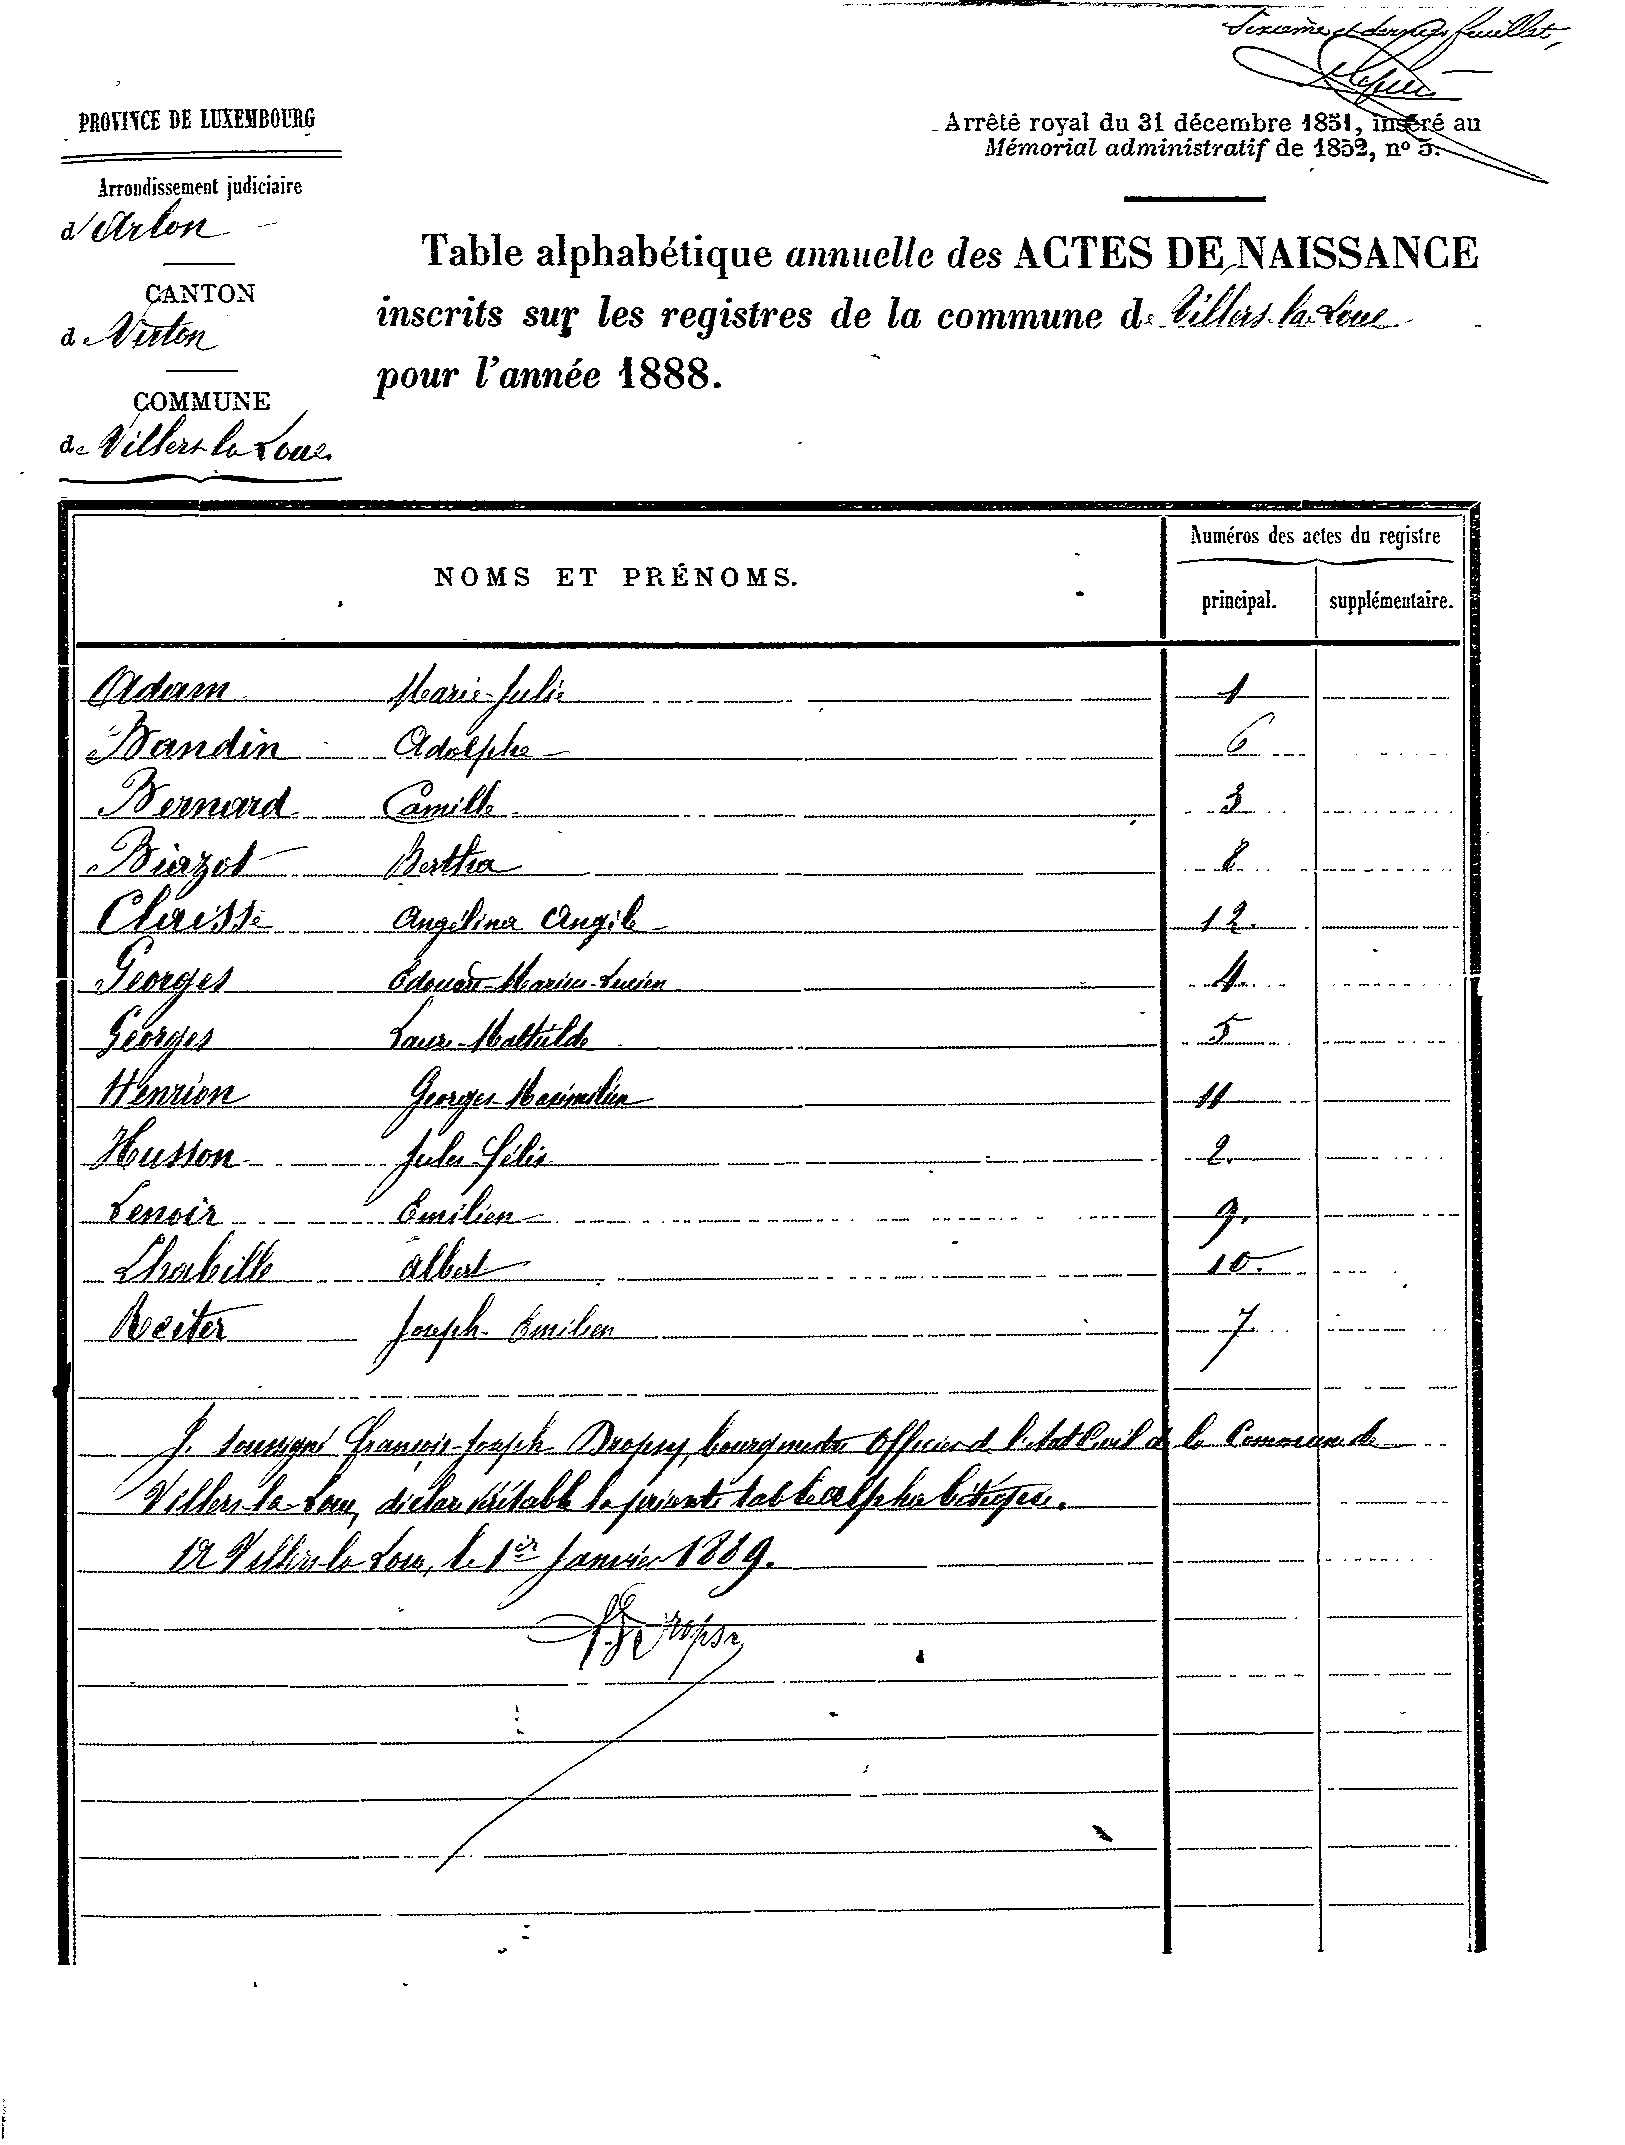 Sixième et dernier feuillet,
PROVINCE DE LUXEMBOURG
Arrondissement judiciaire
d'Arlon
CANTON
de Virton
COMMUNE
de Villers-la-Loue.
Arrêté royal du 31 décembre 1851, inséré au
Mémorial administratif de 1852, nº 5.
Table alphabétique annuelle des ACTES DE NAISSANCE
inscrits sur les registres de la commune de Villers-la-Loue
pour l'année 1888.
NOMS ET PRÉNOMS.
Numéros des actes du registre
principal. supplémentaire.
Adam Marie-Julie 1
Baudin Adolphe 6
Bernard Camille 3
Biazot Bertha 8
Claisse Angélina Angèle 12.
Georges Edouard-Marius-Lucien 4.
Georges Laure-Mathilde 5
Henrion Georges-Maximilien 11
Husson Jules Félix 2.
Lenoir Emilien 9.
Lhabille Albert 10.
Reiter Joseph-Emilien 7
Je soussigné François-Joseph Dropsy, bourgmestre Officier de l'état Civil de la Commune de
Villers-la-Loue, déclare véritable la présente table alphabétique.
A Villers-la-Loue, le 1er Janvier 1889.
F. J. Dropsy